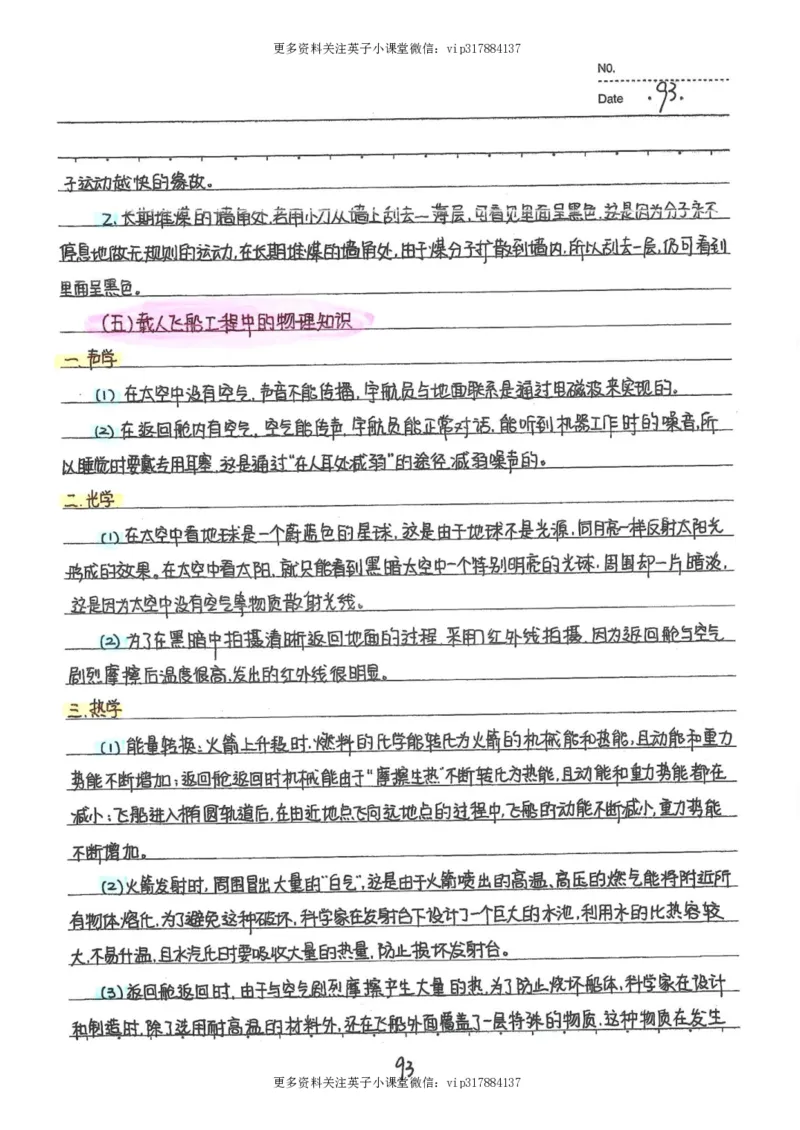 更多资料关注英子小课堂微信：vip317884137
NO.
Date ·93.
子运动越快的缘故。
2.长期堆煤的墙角处,若用小刀从墙上刮去一薄层,可看见里面呈黑色,这是因为分子永不
停息地做无规则的运动,在长期堆煤的墙角处,由于煤分子扩散到墙内,所以刮去一层,仍可看到
里面呈黑色。
(五)载人飞船工程中的物理知识
一.声学
(1) 在太空中没有空气,声音不能传播,宇航员与地面联系是通过电磁波来实现的。
(2) 在返回舱内有空气, 空气能传声,宇航员能正常对话,能听到机器工作时的噪音,所
以睡觉时要戴专用耳塞,这是通过“在人耳处减弱”的途径,减弱噪声的。
二.光学
(1) 在太空中看地球是一个蔚蓝色的星球,这是由于地球不是光源,同月亮一样反射太阳光
形成的效果。在太空中看太阳,就只能看到黑暗太空中一个特别明亮的光球,周围却一片暗淡,
这是因为太空中没有空气等物质散射光线。
(2) 为了在黑暗中拍摄清晰返回地面的过程,采用了红外线拍摄,因为返回舱与空气
剧烈摩擦后温度很高,发出的红外线很明显。
三.热学
(1) 能量转换:火箭上升段时,燃料的化学能转化为火箭的机械能和热能,且动能和重力
势能不断增加;返回舱返回时机械能由于“摩擦生热”不断转化为热能,且动能和重力势能都在
减小;飞船进入椭圆轨道后,在由近地点飞向远地点的过程中,飞船的动能不断减小,重力势能
不断增加。
(2)火箭发射时,周围冒出大量的“白气”,这是由于火箭喷出的高温、高压的燃气能将附近所
有物体熔化,为了避免这种破坏,科学家在发射台下设计了一个巨大的水池,利用水的比热容较
大,不易升温,且水汽化时要吸收大量的热量,防止损坏发射台。
(3)返回舱返回时,由于与空气剧烈摩擦产生大量的热,为了防止烧坏船体,科学家在设计
和制造时,除了选用耐高温的材料外,还在飞船外面覆盖了一层特殊的物质,这种物质在发生
93
更多资料关注英子小课堂微信：vip317884137